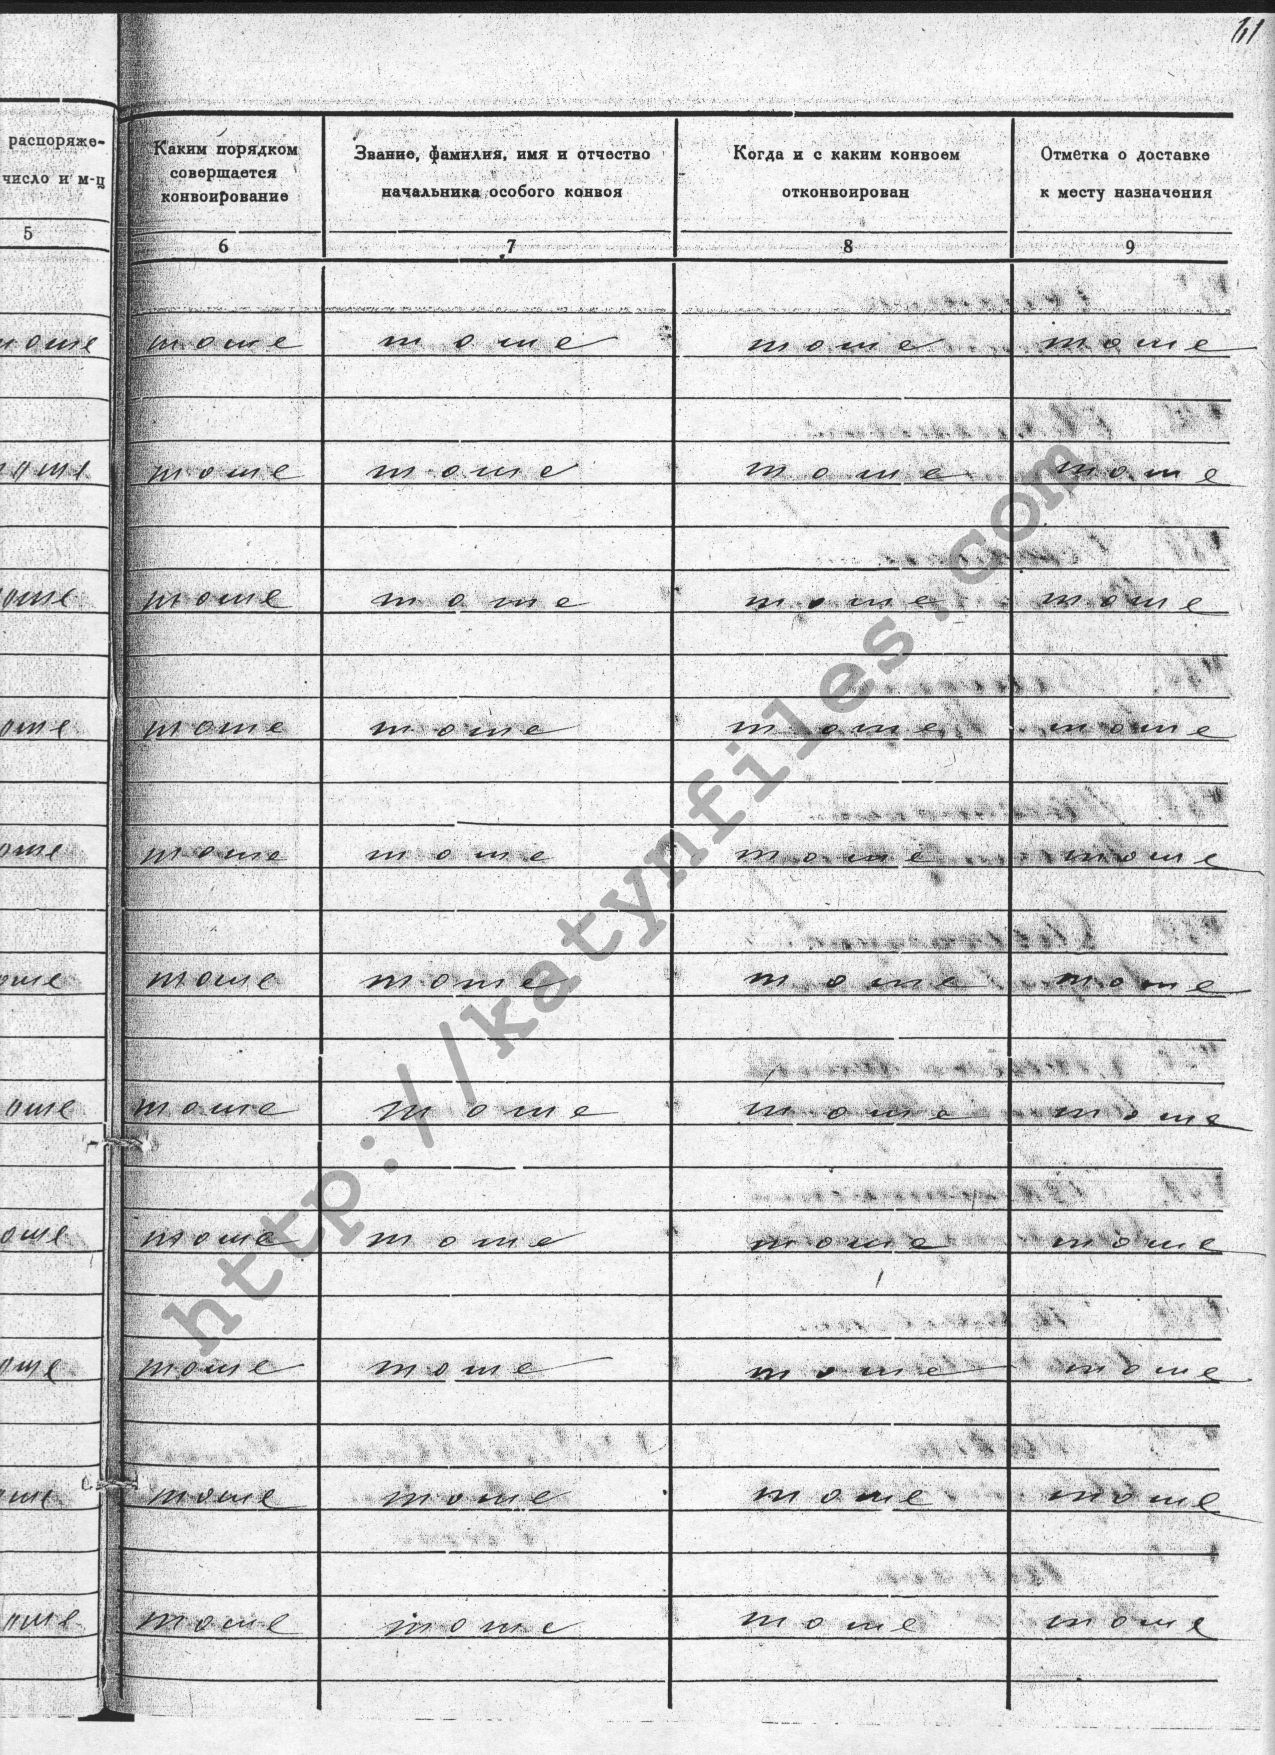 61
распоряже-
число и м-ц
5
Каким порядком
совершается
конвоирование
6
Звание, фамилия, имя и отчество
начальника особого конвоя
7
Когда и с каким конвоем
отконвоирован
8
Отметка о доставке
к месту назначения
9
тоше тоше тоше тоше тоше
тоше тоше тоше тоше тоше
тоше тоше тоше тоше тоше
тоше тоше тоше тоше тоше
тоше тоше тоше тоше тоше
тоше тоше тоше тоше тоше
тоше тоше тоше тоше тоше
тоше тоше тоше тоше тоше
тоше тоше тоше тоше тоше
тоше тоше тоше тоше тоше
тоше тоше тоше тоше тоше
http://katynfiles.com